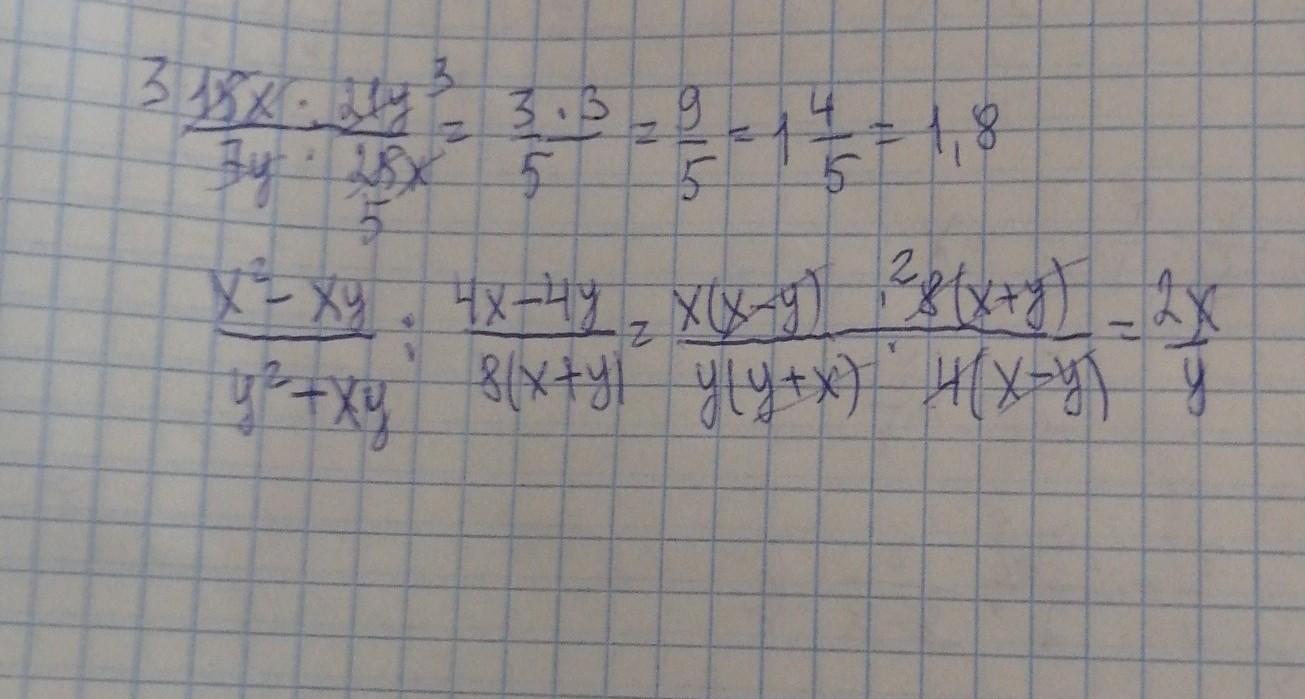 3 15x · 21y 3 / 7y · 25x 5 = 3 · 3 / 5 = 9/5 = 1 4/5 = 1,8
x² - xy / y² + xy : 4x - 4y / 8(x+y) = x(x-y) · 2 8(x+y) / y(y+x) · 4(x-y) = 2x / y